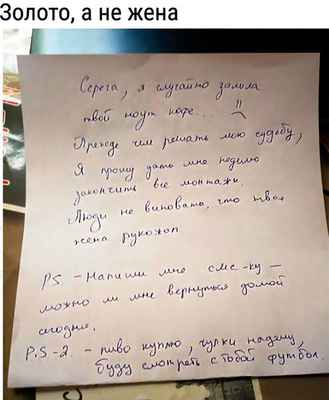 Золото, а не жена
Серега, я случайно залила
твой ноут кофе...
Прежде чем решать мою судьбу,
я прошу дать мне неделю
закончить все монтажи.
Люди не виновата, что твоя
жена рукожоп
PS - Напиши мне смс-ку -
можно ли мне вернуться домой
сегодня.
P.S-2. - пиво куплю, чулки надену,
буду смотреть с тобой футбол.